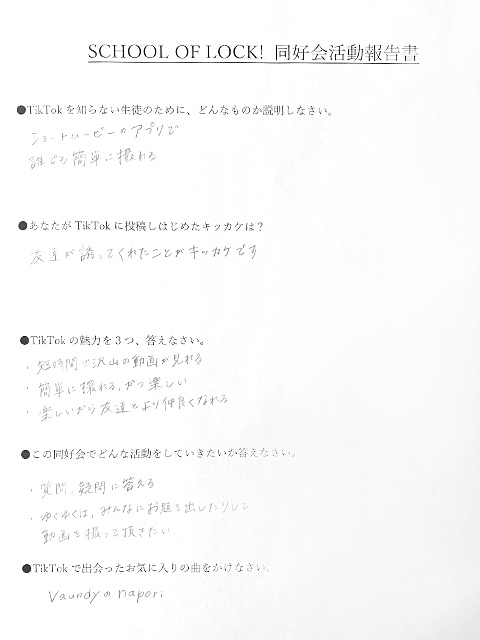 SCHOOL OF LOCK! 同好会活動報告書
●TikTokを知らない生徒のために、どんなものか説明しなさい。
ショートムービーのアプリで
誰でも簡単に撮れる
●あなたが TikTok に投稿しはじめたキッカケは？
友達が誘ってくれたことがキッカケです
●TikTokの魅力を3つ、答えなさい。
・短時間で沢山の動画が見れる
・簡単に撮れる、かつ楽しい
・楽しいから友達とより仲良くなれる
●この同好会でどんな活動をしていきたいか答えなさい。
・質問、疑問に答える
・ゆくゆくは、みんなにお題を出したりして
動画を撮って頂きたい
●TikTokで出会ったお気に入りの曲をかけなさい。
Vaundyのnapori